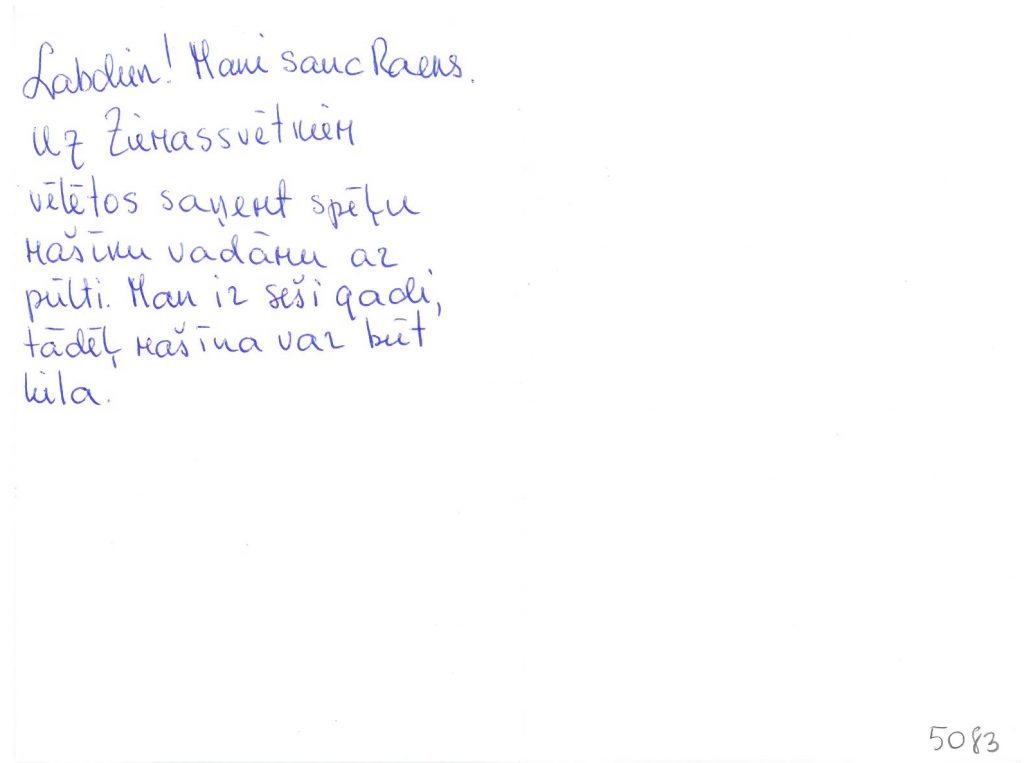 Labdien! Mani sauc Raens.
Uz Ziemassvētkiem
vēlētos saņemt spēļu
mašīnu vadāmu ar
pulti. Man ir seši gadi,
tādēļ mašīna var būt
liela.
5083